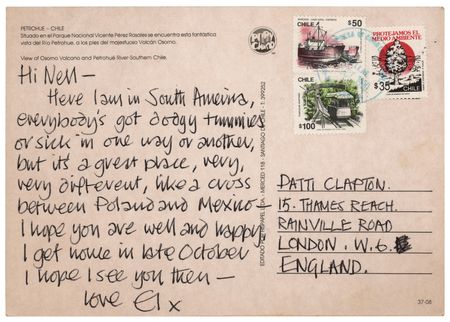 PETROHUE - CHILE
Situado en el Parque Nacional Vicente Pérez Rosales se encuentra esta fantástica
vista del Río Petrohue, a los pies del majestuoso Volcán Osorno.
View of Osorno Volcano and Petrohué River Southern Chile.
Hi Nell -
Here I am in South America,
everybody's got dodgy tummies
or sick in one way or another,
but it's a great place, very,
very different, like a cross
between Poland and Mexico -
I hope you are well and happy
I get home in late October
I hope I see you then -
love El x
$50
CHILE
CHILE
$100
PROTEJAMOS EL
MEDIO AMBIENTE
$35
CHILE
MERCED 118 - SANTIAGO
PATTI CLAPTON.
15. THAMES REACH.
RAINVILLE ROAD
LONDON. W.6.
ENGLAND.
37-08